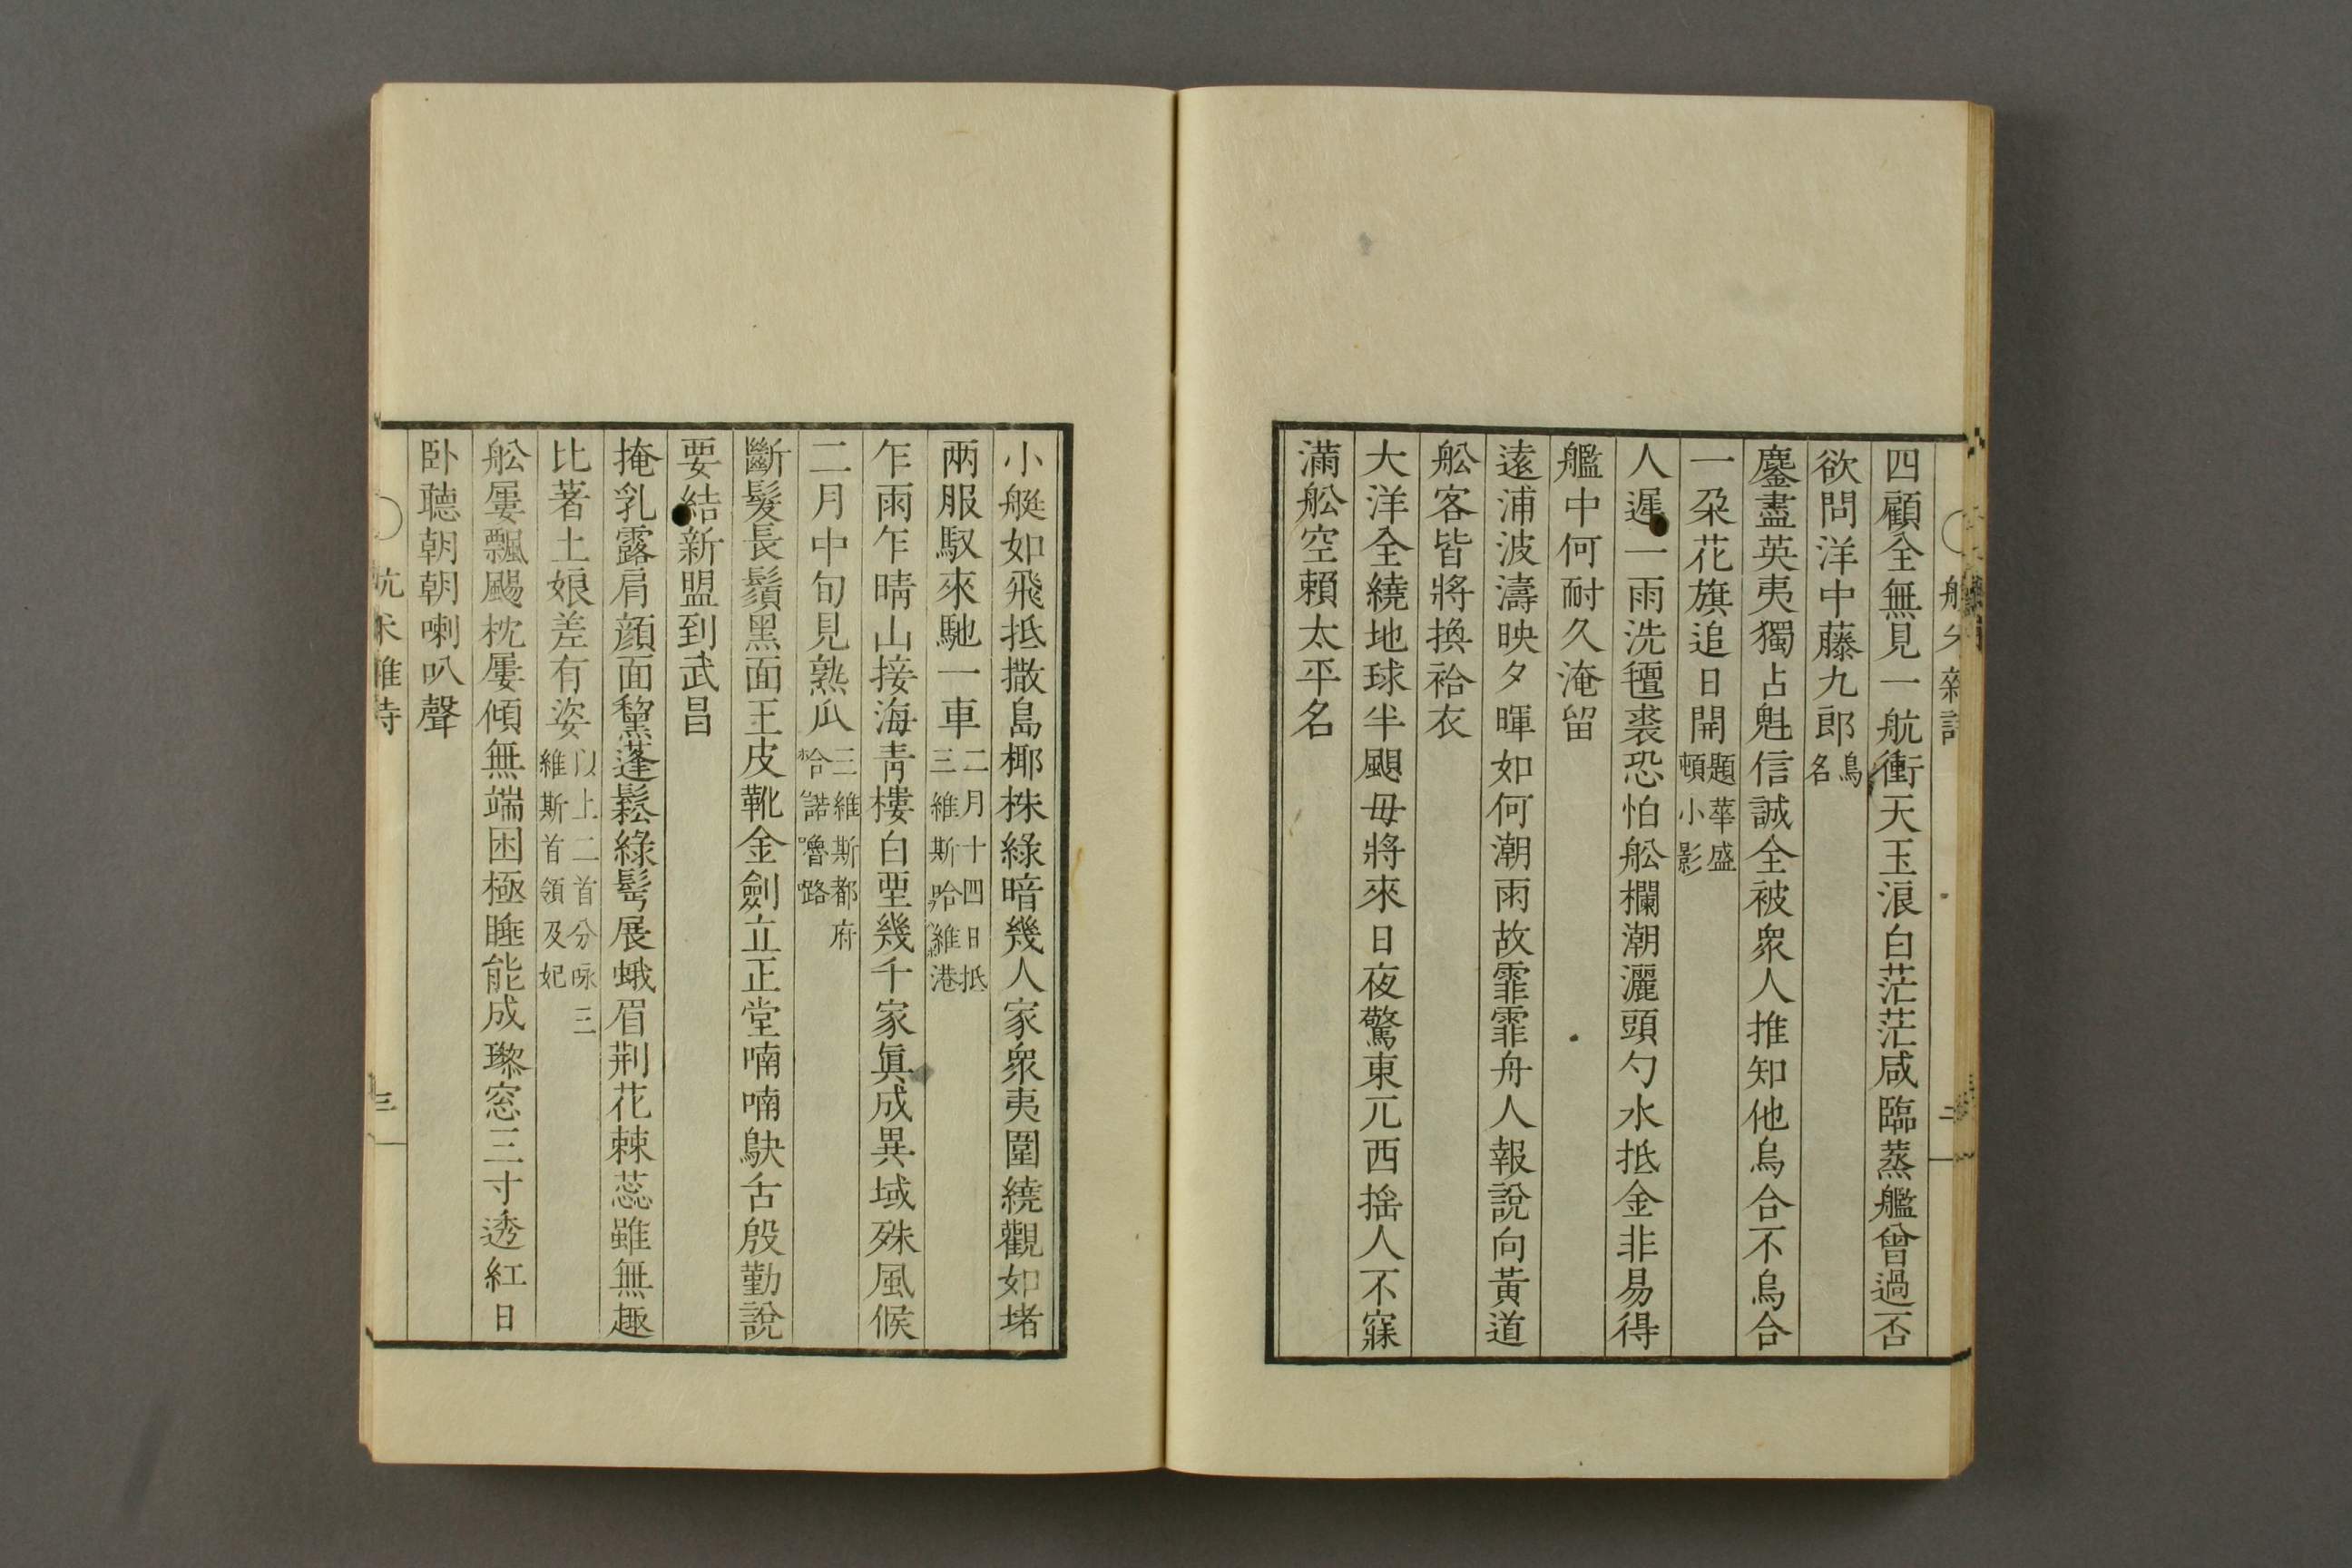 四顧全無見一航衝天玉浪白茫茫咸臨蒸艦曾過否
欲問洋中藤九郎鳥名
鏖盡英夷獨占魁信誠全被衆人推知他烏合不烏合
一朶花旗追日開題華盛頓小影
人遲一雨洗氊裘恐怕舩欄潮灑頭勺水抵金非易得
艦中何耐久淹留
遠浦波濤映夕暉如何潮雨故霏霏舟人報說向黃道
舩客皆將換袷衣
大洋全繞地球半颶毋將來日夜驚東兀西搖人不寐
滿舩空賴太平名
小艇如飛抵撒島椰株綠暗幾人家衆夷圍繞觀如堵
兩服馭來馳一車二月十四日抵三維斯哈維港
乍雨乍晴山接海靑樓白堊幾千家眞成異域殊風候
二月中旬見熟瓜三維斯都府
斷髮長鬚黑面王皮靴金劍立正堂喃喃鴃舌殷勤說
要結新盟到武昌
掩乳露肩顏面黧蓬鬆綠髩展蛾眉荆花棘蕊雖無趣
比著土娘差有姿以上二首分咏三維斯首領及妃
舩屢飄颺枕屢傾無端困極睡能成瓈窓三寸透紅日
卧聽朝朝喇叭聲
三